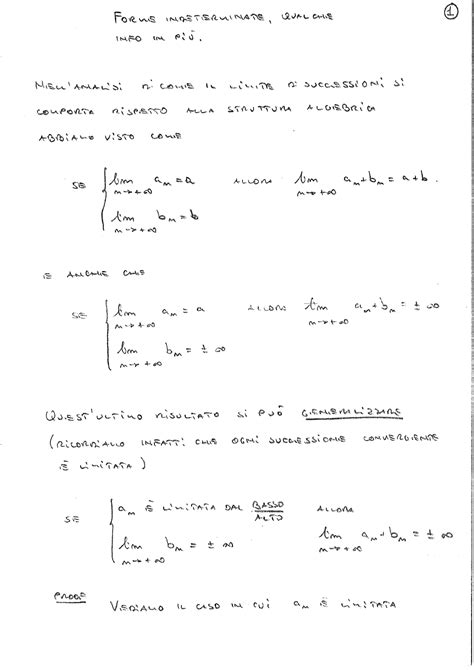 1
FORME INDETERMINATE, QUALCHE
INFO IN PIÙ.
NELL'ANALISI DI COME IL LIMITE DI SUCCESSIONI SI
COMPORTA RISPETTO ALLA STRUTTURA ALGEBRICA
ABBIAMO VISTO COME
SE { lim n→+∞ a_n = a ALLORA lim n→+∞ a_n + b_n = a + b.
lim n→+∞ b_n = b
E ANCHE CHE
SE { lim n→+∞ a_n = a ALLORA lim n→+∞ a_n + b_n = ±∞
lim n→+∞ b_n = ±∞
QUEST'ULTIMO RISULTATO SI PUÒ GENERALIZZARE
(RICORDIAMO INFATTI CHE OGNI SUCCESSIONE CONVERGENTE
È LIMITATA)
SE { a_n È LIMITATA DAL BASSO/ALTO ALLORA
lim n→+∞ b_n = ±∞ lim n→+∞ a_n + b_n = ±∞
PROOF VEDIAMO IL CASO IN CUI a_n È LIMITATA